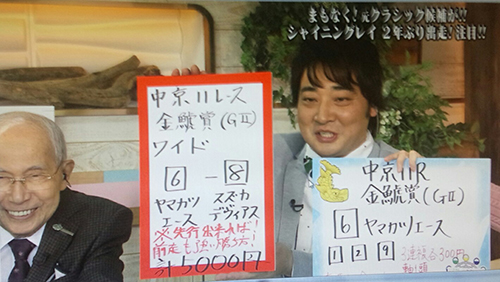 まもなく!元クラシック候補が!!
シャイニングレイ 2年ぶり出走!注目!!
中京11レース
金鯱賞(GⅡ)
ワイド
6-8
ヤマカツエース
スズカデヴィアス
先行出来れば!
前走も強い勝ち方!
計5000円
中京11R
金鯱賞(GⅡ)
6 ヤマカツエース
1 2 9
3連複各300円
軸1頭